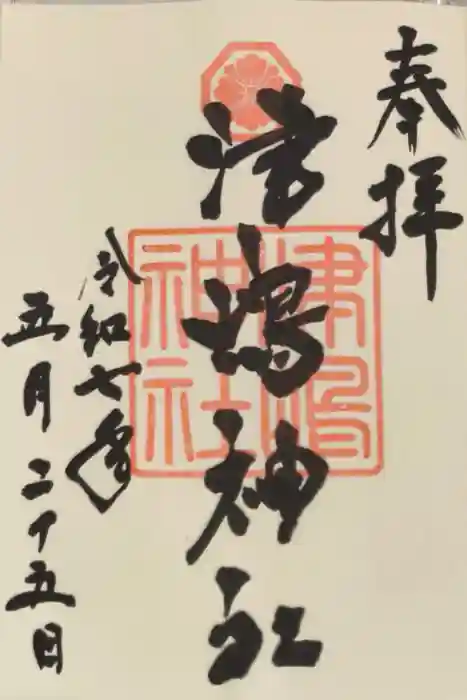 奉拝
津嶋神社
津嶋神社
令和七年
五月二十五日